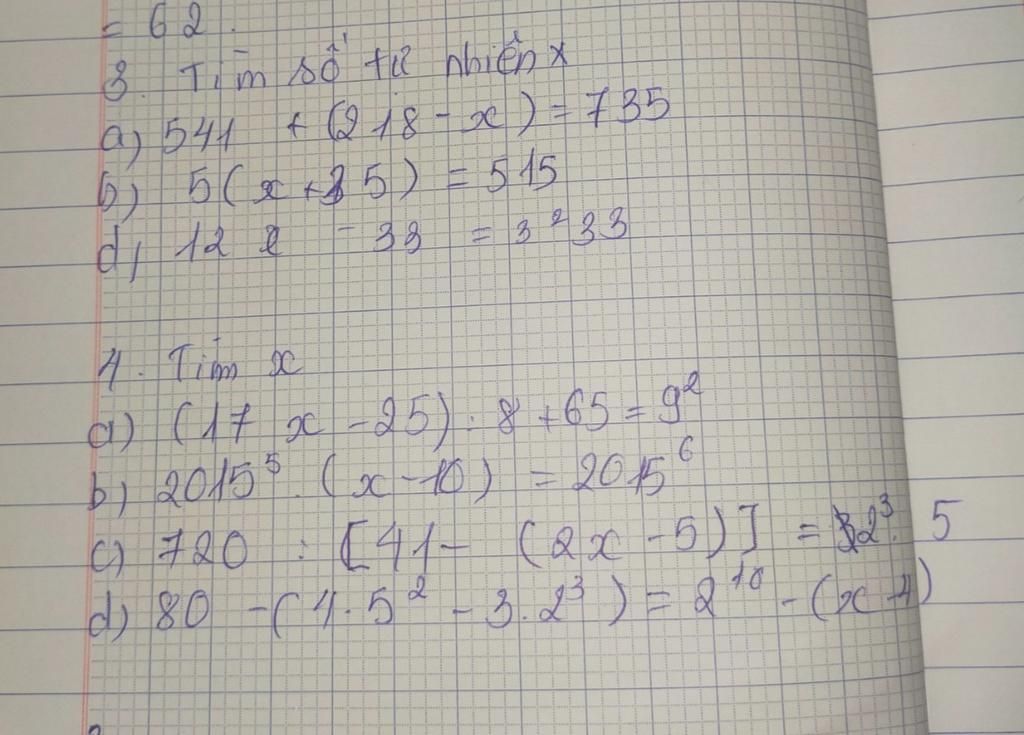 = 62.
3. Tìm số tự nhiên x
a) 541 + (218 - x) = 735
b) 5(x + 35) = 515
d) 12 x - 33 = 3² 33
4. Tìm x
a) (17 x - 25) : 8 + 65 = 9²
b) 2015⁵ . (x - 10) = 2015⁶
c) 720 : [41 - (2x - 5)] = 2³. 5
d) 80 - (4.5² - 3.2³) = 2¹⁰ - (x - 4)